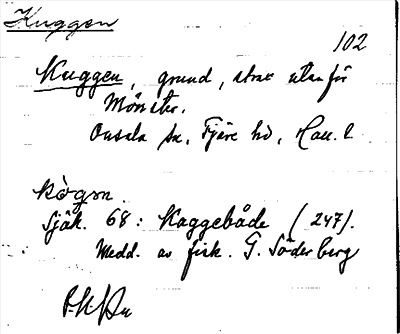 Kuggen
102
Kuggen, grund, strax utanför
Mönster.
Onsala sn, Fjäre hd, Hall. l.
kògən.
Sjök. 68: Kaggebåde (247).
Medd. av fisk. G. Söderberg